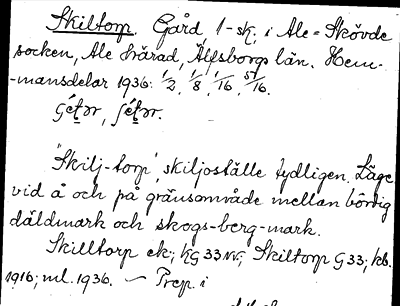 Skiltorp. Gård, 1-sk. i Ale-Skövde
socken, Ale härad, Älfsborgs län. Hem-
-mansdelar 1936: 1/2, 1/8, 1/16, 5/16.
"Skilj-torp", skiljoställe tydligen. Läge
vid å och på gränsområde mellan bördig
däldmark och skogs-berg-mark.
Skilltorp ek; KG 33 NV; Skiltorp G 33; kb.
1916; ml. 1936. — Prep. i